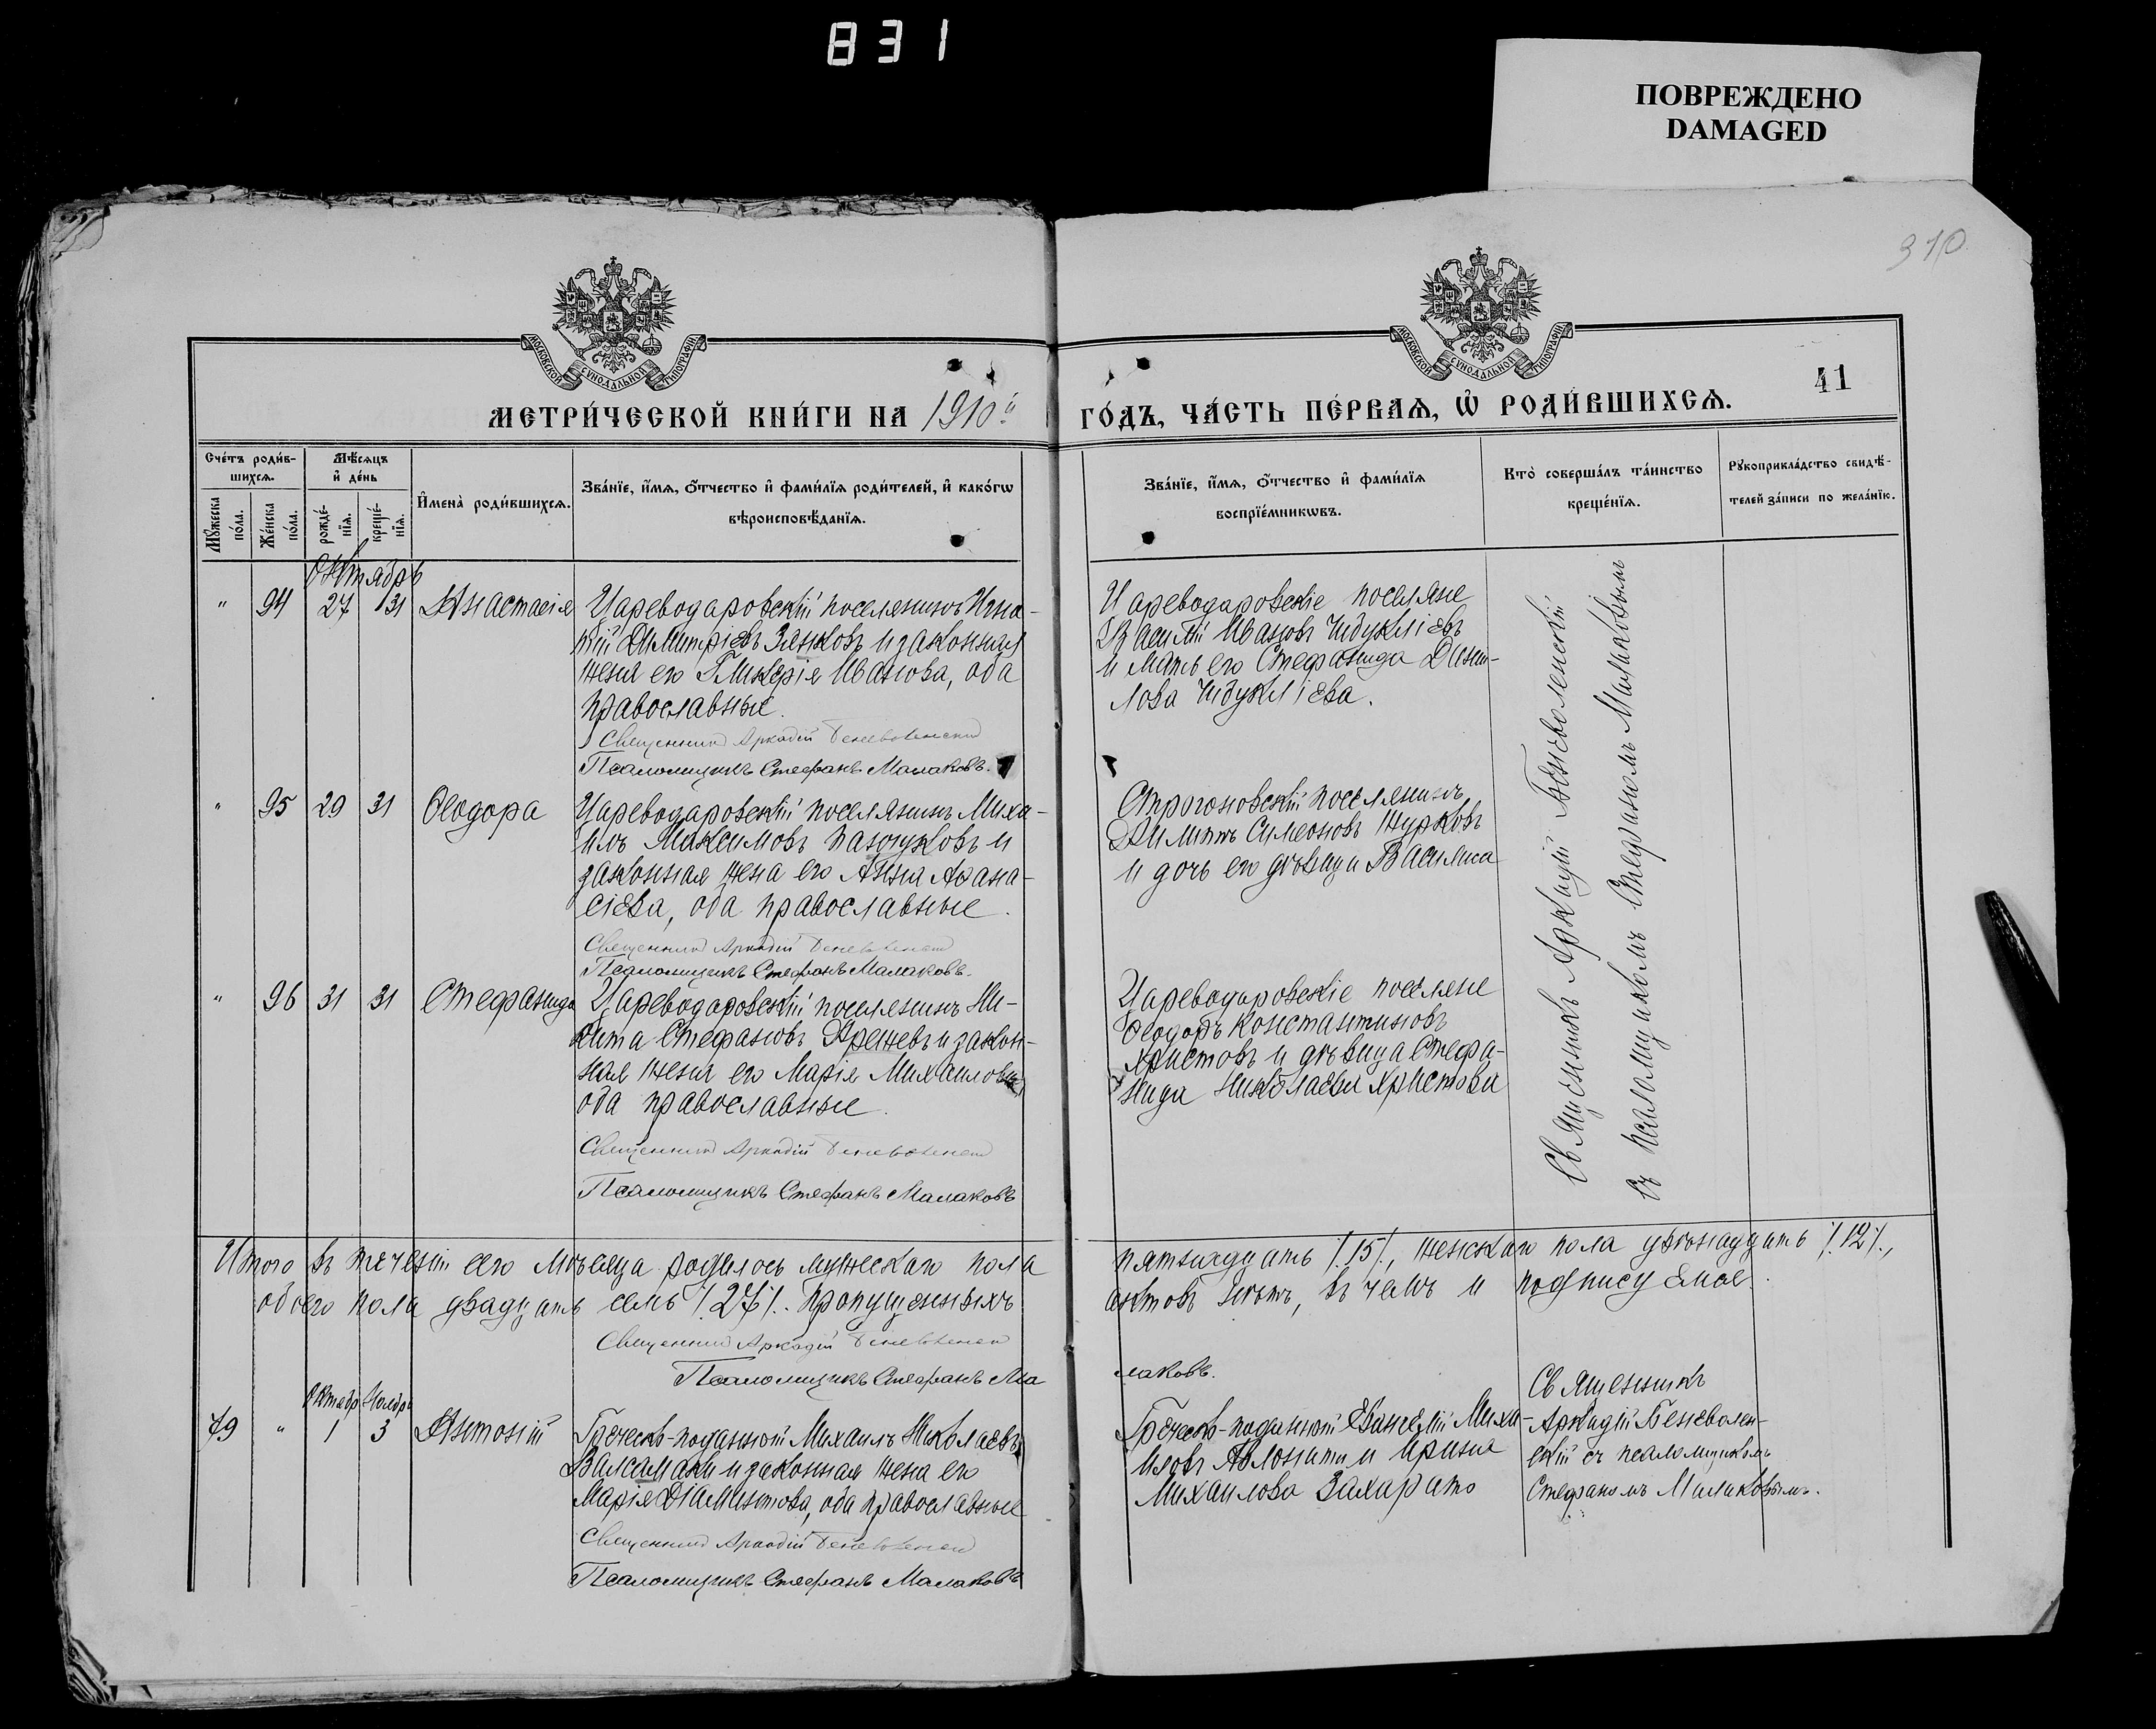 831
ПОВРЕЖДЕНО
DAMAGED
310
41
МОСКОВСКОЙ СѴНОДАЛЬНОЙ ТИПОГРАФІИ
МОСКОВСКОЙ СѴНОДАЛЬНОЙ ТИПОГРАФІИ
МЕТРИ́ЧЕСКОЙ КНИ́ГИ НА 1910й
ГО́ДЪ, ЧА́СТЬ ПЕ́РВАѦ, Ѡ РОДИ́ВШИХСѦ.
Сче́тъ роди́в-
шихсѧ.
Мѣ́сѧцъ
и҆ де́нь
Мꙋ́жеска
по́ла.
Же́нска
по́ла.
рожде́-
нїѧ.
креще́-
нїѧ.
И҆мена̀ роди́вшихсѧ.
Зва́нїе, и҆́мѧ, ѻ҆́тчество и҆ фами́лїѧ роди́телей, и҆ како́гѡ
вѣроисповѣ́данїѧ.
Зва́нїе, и҆́мѧ, ѻ҆́тчество и҆ фами́лїѧ
воспрїе́мникѡвъ.
Кто̀ соверша́лъ та́инство
креще́нїѧ.
Рꙋкоприкла́дство свидѣ́-
телей за́писи по жела́нїю.
Октябрь
" 94 27 31 Анастасія
Цареводаровскій поселянинъ Игна-
тій Димитріевъ Занковъ и законная
жена его Гликерія Иванова, оба
православные.
Священникъ Аркадій Беневоленскій
Псаломщикъ Стефанъ Малаковъ.
Цареводаровскіе поселяне
Василій Ивановъ
и мать его Стефанида Данi-
лова
Священникъ Аркадій Беневоленскій
съ псаломщикомъ Стефаномъ Малаковымъ
" 95 29 31 Ѳеодора
Цареводаровскій поселянинъ Миха-
илъ Максимовъ Пазчуковъ и
законная жена его Анна Аѳана-
сіева, оба православные.
Священникъ Аркадій Беневоленскій
Псаломщикъ Стефанъ Малаковъ.
Строгоновскій поселянинъ
Филиппъ Симеоновъ Журковъ
и дочь его дѣвица Василиса
" 96 31 31 Стефанида
Цареводаровскій поселянинъ Ни-
кита Стефановъ Арежевъ и закон-
ная жена его Марія Михаилова
оба православные.
Священникъ Аркадій Беневоленскій
Псаломщикъ Стефанъ Малаковъ
Цареводаровскіе поселяне
Ѳеодоръ Константиновъ
Христовъ и дѣвица Стефа-
нида Николаева Христова
Итого въ теченіи сего мѣсяца родилось мужескаго пола
пятнадцать /.15/., женскаго пола двѣнадцать /.12/.,
обоего пола двадцать семь /.27/. Пропущенныхъ
актовъ нѣтъ, въ чемъ и подписуемся.
Священникъ Аркадій Беневоленскій
Псаломщикъ Стефанъ Ма
лаковъ.
Октябр. Ноябрь
79 " 1 3 Антоній
Греческо-подданный Михаилъ Николаевъ
Валсамаки и законная жена его
Марія Діамантова, оба православные
Священникъ Аркадій Беневоленскій
Псаломщикъ Стефанъ Малаковъ
Греческо-подданный Евангелій Миха-
иловъ Авлонити и Ирина
Михаилова Захарато
Священникъ
Аркадій Беневолен-
скій съ псаломщикомъ
Стефаномъ Малаковымъ.